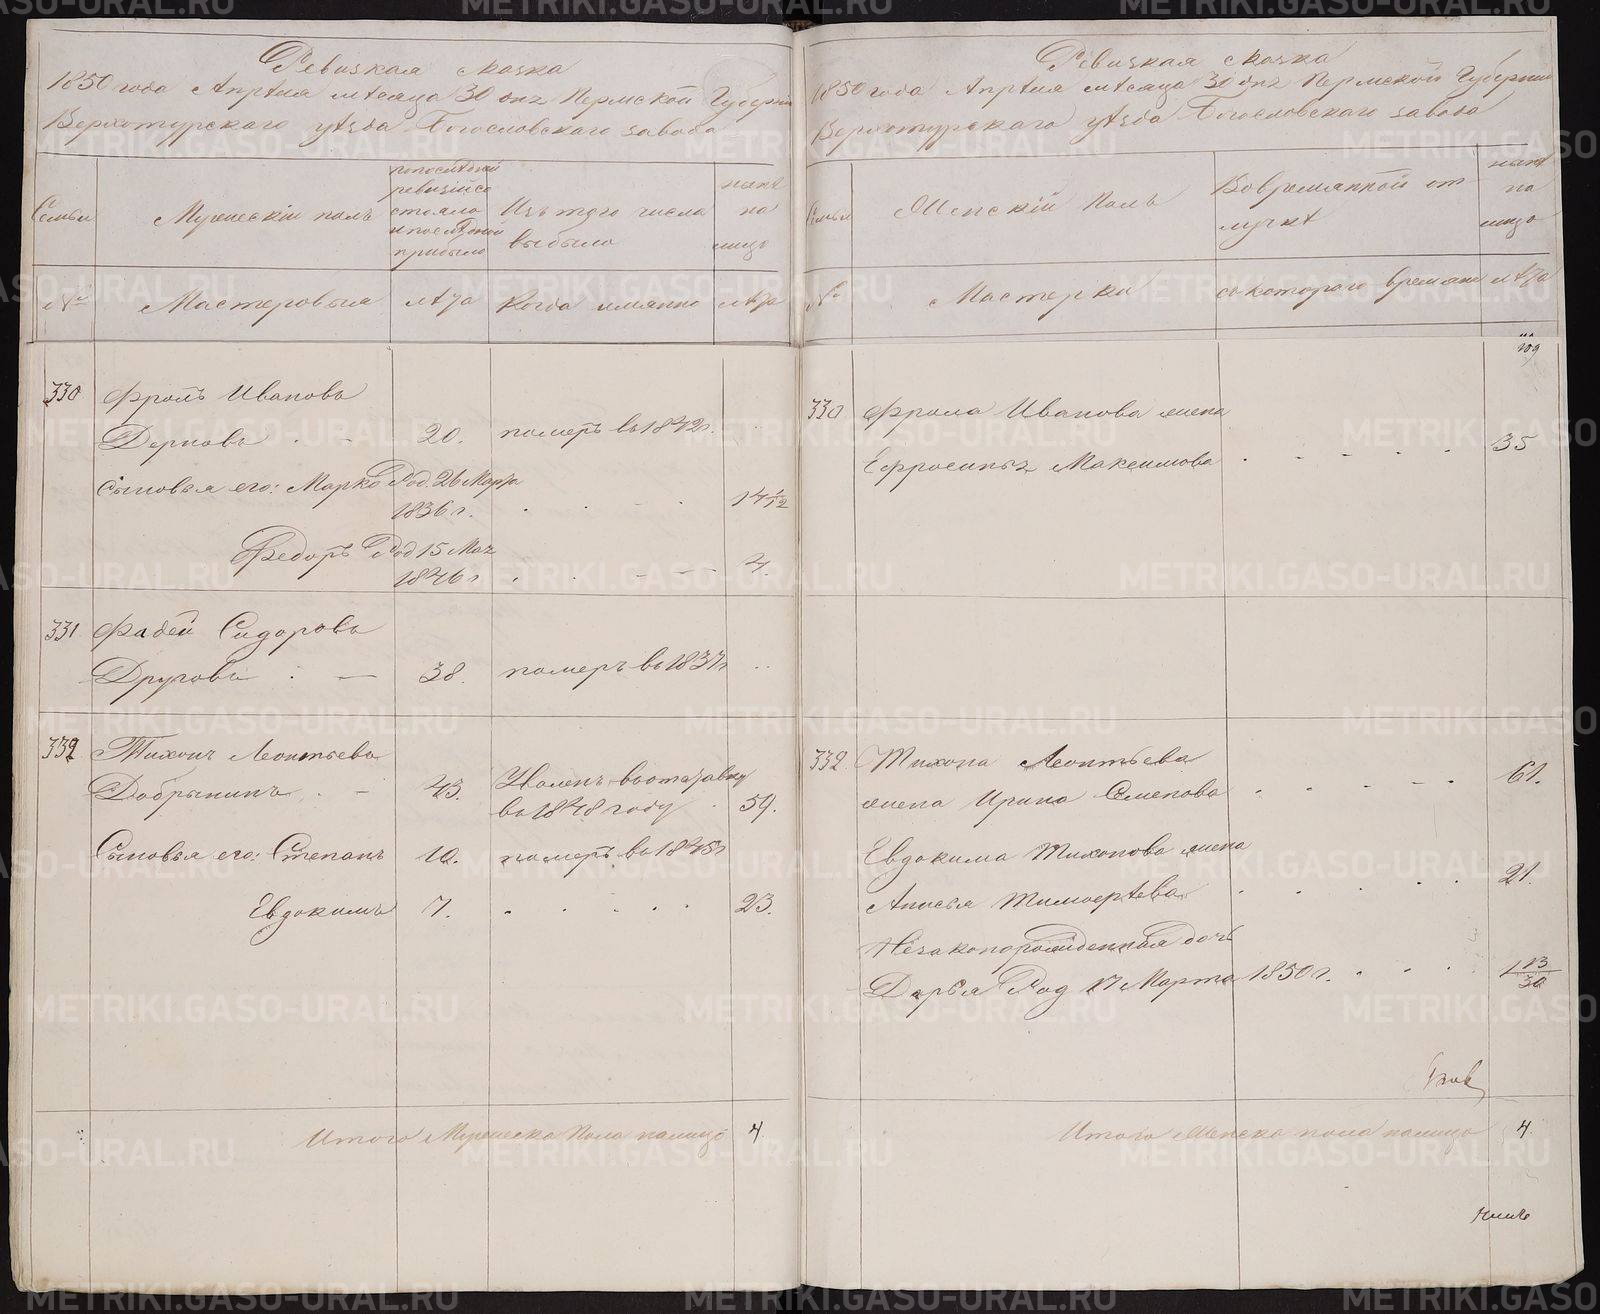 Ревизкая сказка
1850 года Апрѣля мѣсяца 30 дня Пермской Губерніи
Верхотурскаго уѣзда Богословскаго завода
Семьи
Мужескій полъ
попослѣдней
ревизіи со
стояло
и послѣ оной
прибыло
Изъ того числа
выбыло
нынѣ
на
лицо
№
Мастеровыя
лѣта
Когда имянно
лѣта
330
Фролъ Ивановъ
Дерновъ . —
20.
померъ въ 1842 г.
Сыновья его: Марко Род. 26 Марта
1836 г.
14 1/12
Федоръ Род 15 Мая
1846 г
4.
331
Фадей Сидоровъ
Друговъ . —
38.
померъ въ 1837 г
332
Тихонъ Леонтьевъ
Добрынинъ . —
43.
Уволенъ въ отставку
въ 1848 году
59.
Сыновья его: Степанъ
10.
померъ въ 1845 г
Евдокимъ
7.
23.
Итого Мужеска Пола налицо 4
Ревизкая сказка
1850 года Апрѣля мѣсяца 30 дня Пермской Губерніи
Верхотурскаго уѣзда Богословскаго завода
Семьи
Женскій Полъ
Вовремянной от
лучкѣ
нынѣ
на
лицо
№
Мастерки
съ котораго времяни
лѣта
109
330
Фрола Иванова жена
Ефросинья Максимова
35
332.
Тихона Леонтьева
жена Ирина Семенова
61.
Евдокима Тихонова жена
Анисья Тимофѣева
21.
Незаконорожденная дочь
Дарья Род 17 Марта 1850 г.
1 13/30
Итого Женска пола налицо 4
METRIKI.GASO-URAL.RU